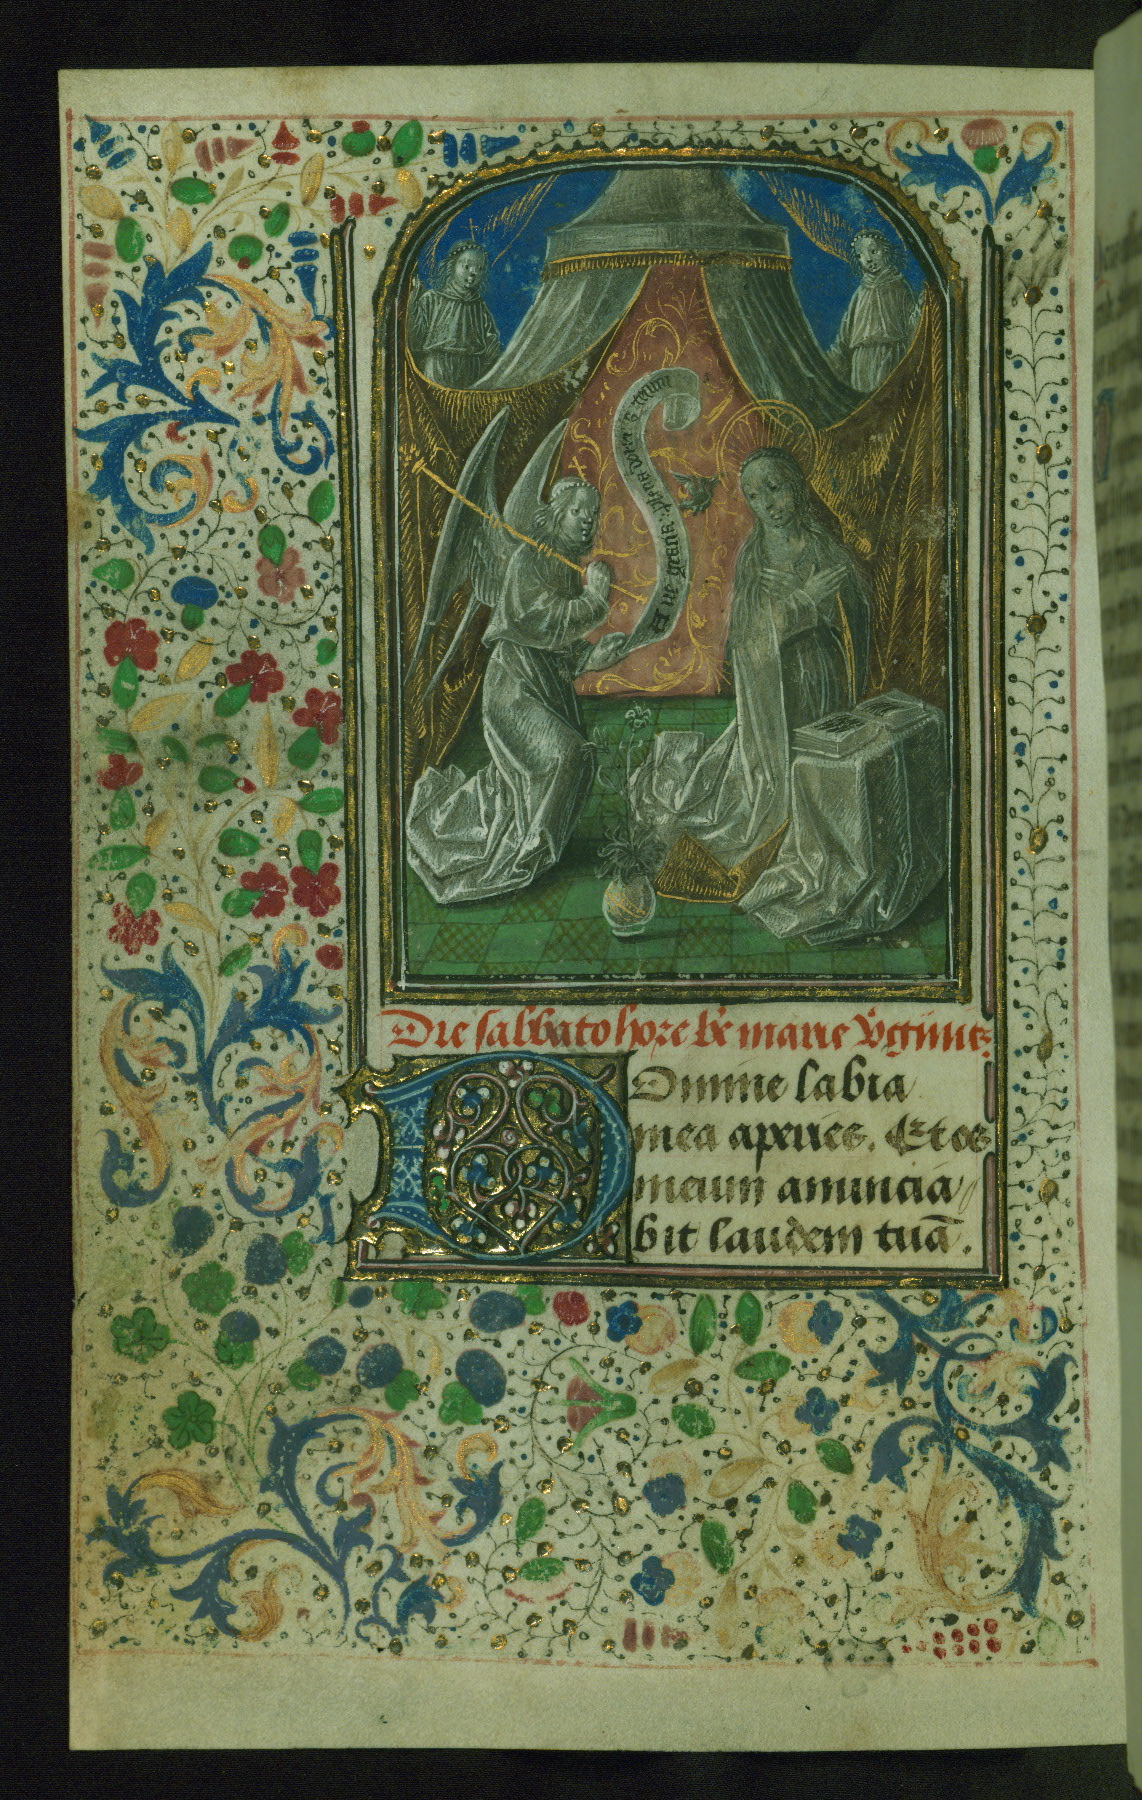 Aue gracia plena dominus tecum
Die sabbato hore bẽ marie v̾gĩnis
Domine labia
mea aperies. Et os
meum anuncia
bit laudem tuã.